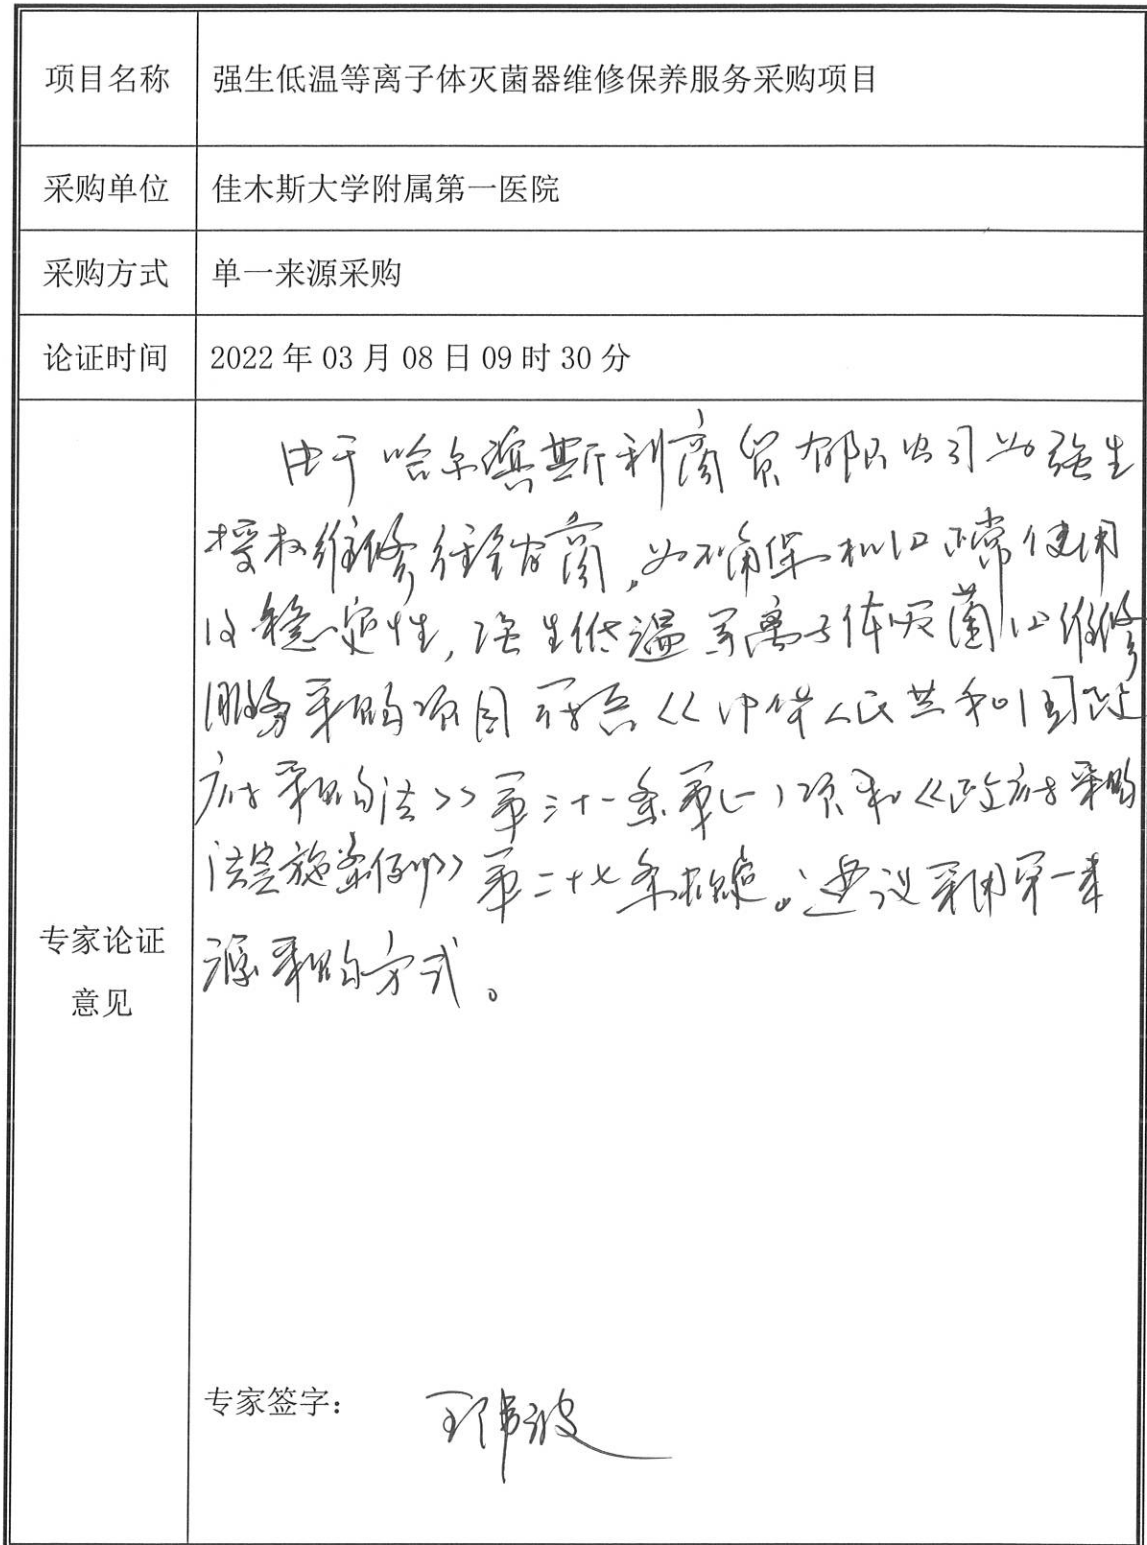 项目名称 强生低温等离子体灭菌器维修保养服务采购项目
采购单位 佳木斯大学附属第一医院
采购方式 单一来源采购
论证时间 2022 年 03 月 08 日 09 时 30 分
专家论证
意见
由于哈尔滨斯利商贸有限公司为强生
授权维修经销商,为确保机口正常使用
以稳定性,强生低温等离子体灭菌口维修
服务采购项目符合《中华人民共和国政
府采购法》第三十一条第(一)项和《政府采购
法实施条例》第二十七条规定。建议采用单一来
源采购方式。
专家签字: